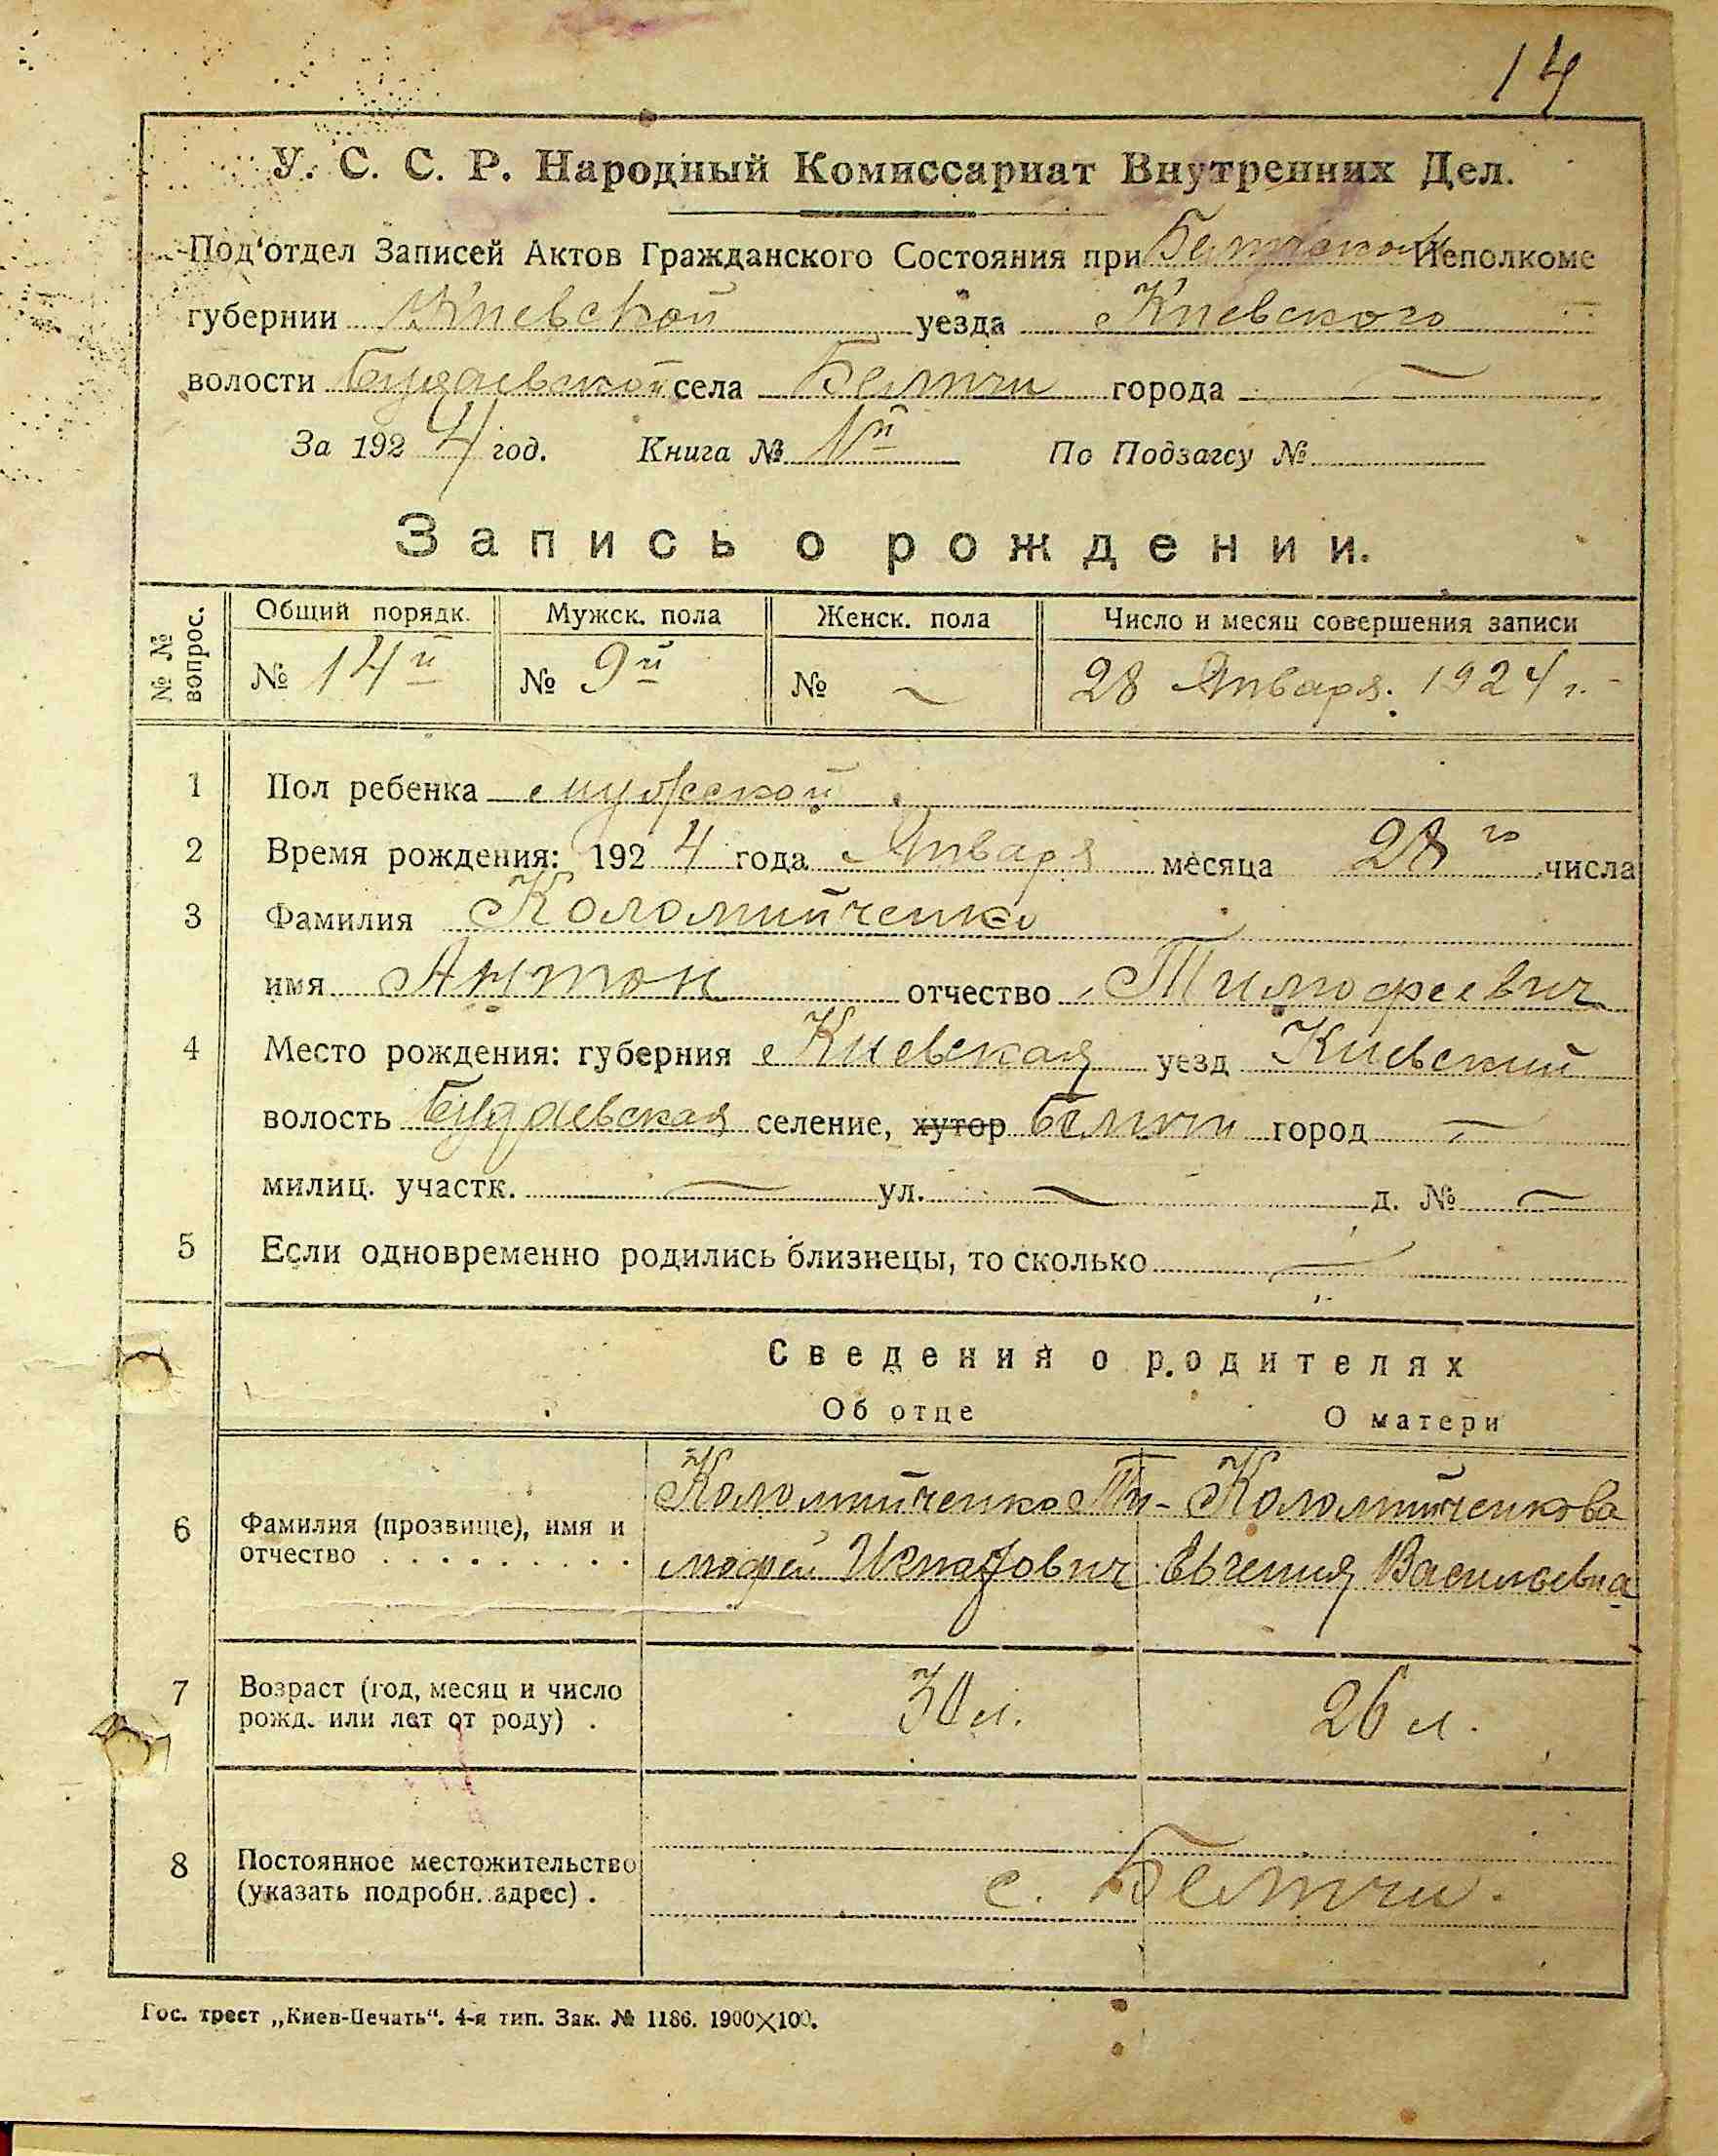 14
У. С. С. Р. Народный Комиссариат Внутренних Дел.
Под'отдел Записей Актов Гражданского Состояния при Беличском Исполкоме
губернии Киевской уезда Киевского
волости Будаевской села Беличи города —
За 1924 год. Книга № 1й По Подзагсу №
Запись о рождении.
№ № вопрос. Общий порядк. Мужск. пола Женск. пола Число и месяц совершения записи
№ 14й № 9й № — 28 Января. 1924 г.
1 Пол ребенка мужской
2 Время рождения: 1924 года Января месяца 28го числа
3 Фамилия Коломийченко
имя Антон отчество Тимофеевич
4 Место рождения: губерния Киевская уезд Киевский
волость Будаевская селение, хутор Беличи город —
милиц. участк. — ул. — д. № —
5 Если одновременно родились близнецы, то сколько —
Сведения о родителях
Об отце О матери
Коломийченко Ти- Коломийченкова
6 Фамилия (прозвище), имя и
отчество . . . . . . . . . . мофей Евгения Васильевна
7 Возраст (год, месяц и число
рожд. или лет от роду) . 30 л. 26 л.
8 Постоянное местожительство
(указать подробн. адрес) . с. Беличи.
Гос. трест „Киев-Печать“. 4-я тип. Зак. № 1186. 1900×100.